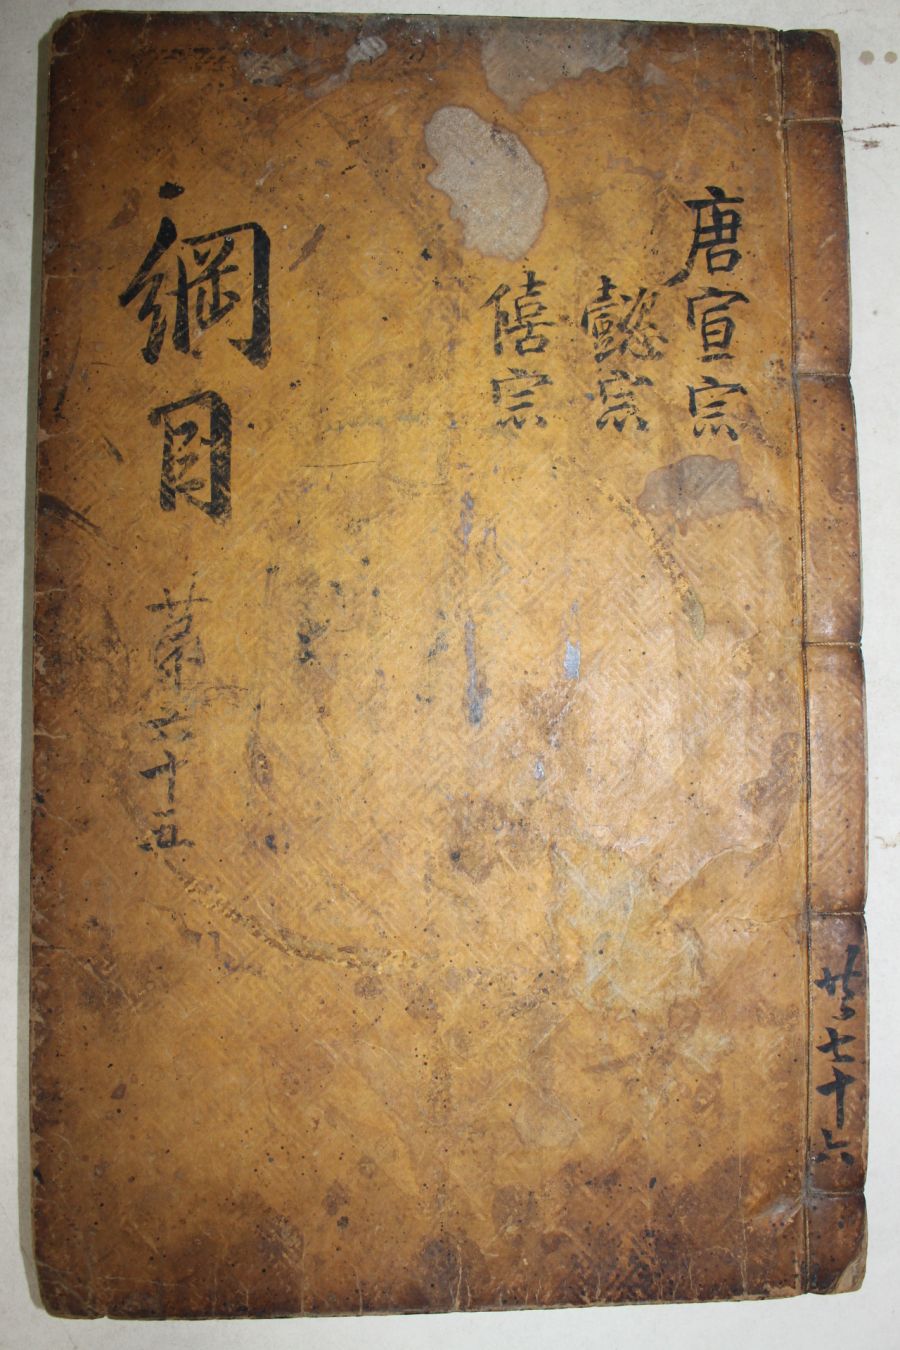 唐宣宗
懿宗
僖宗
綱目
苐六十五
共七十六